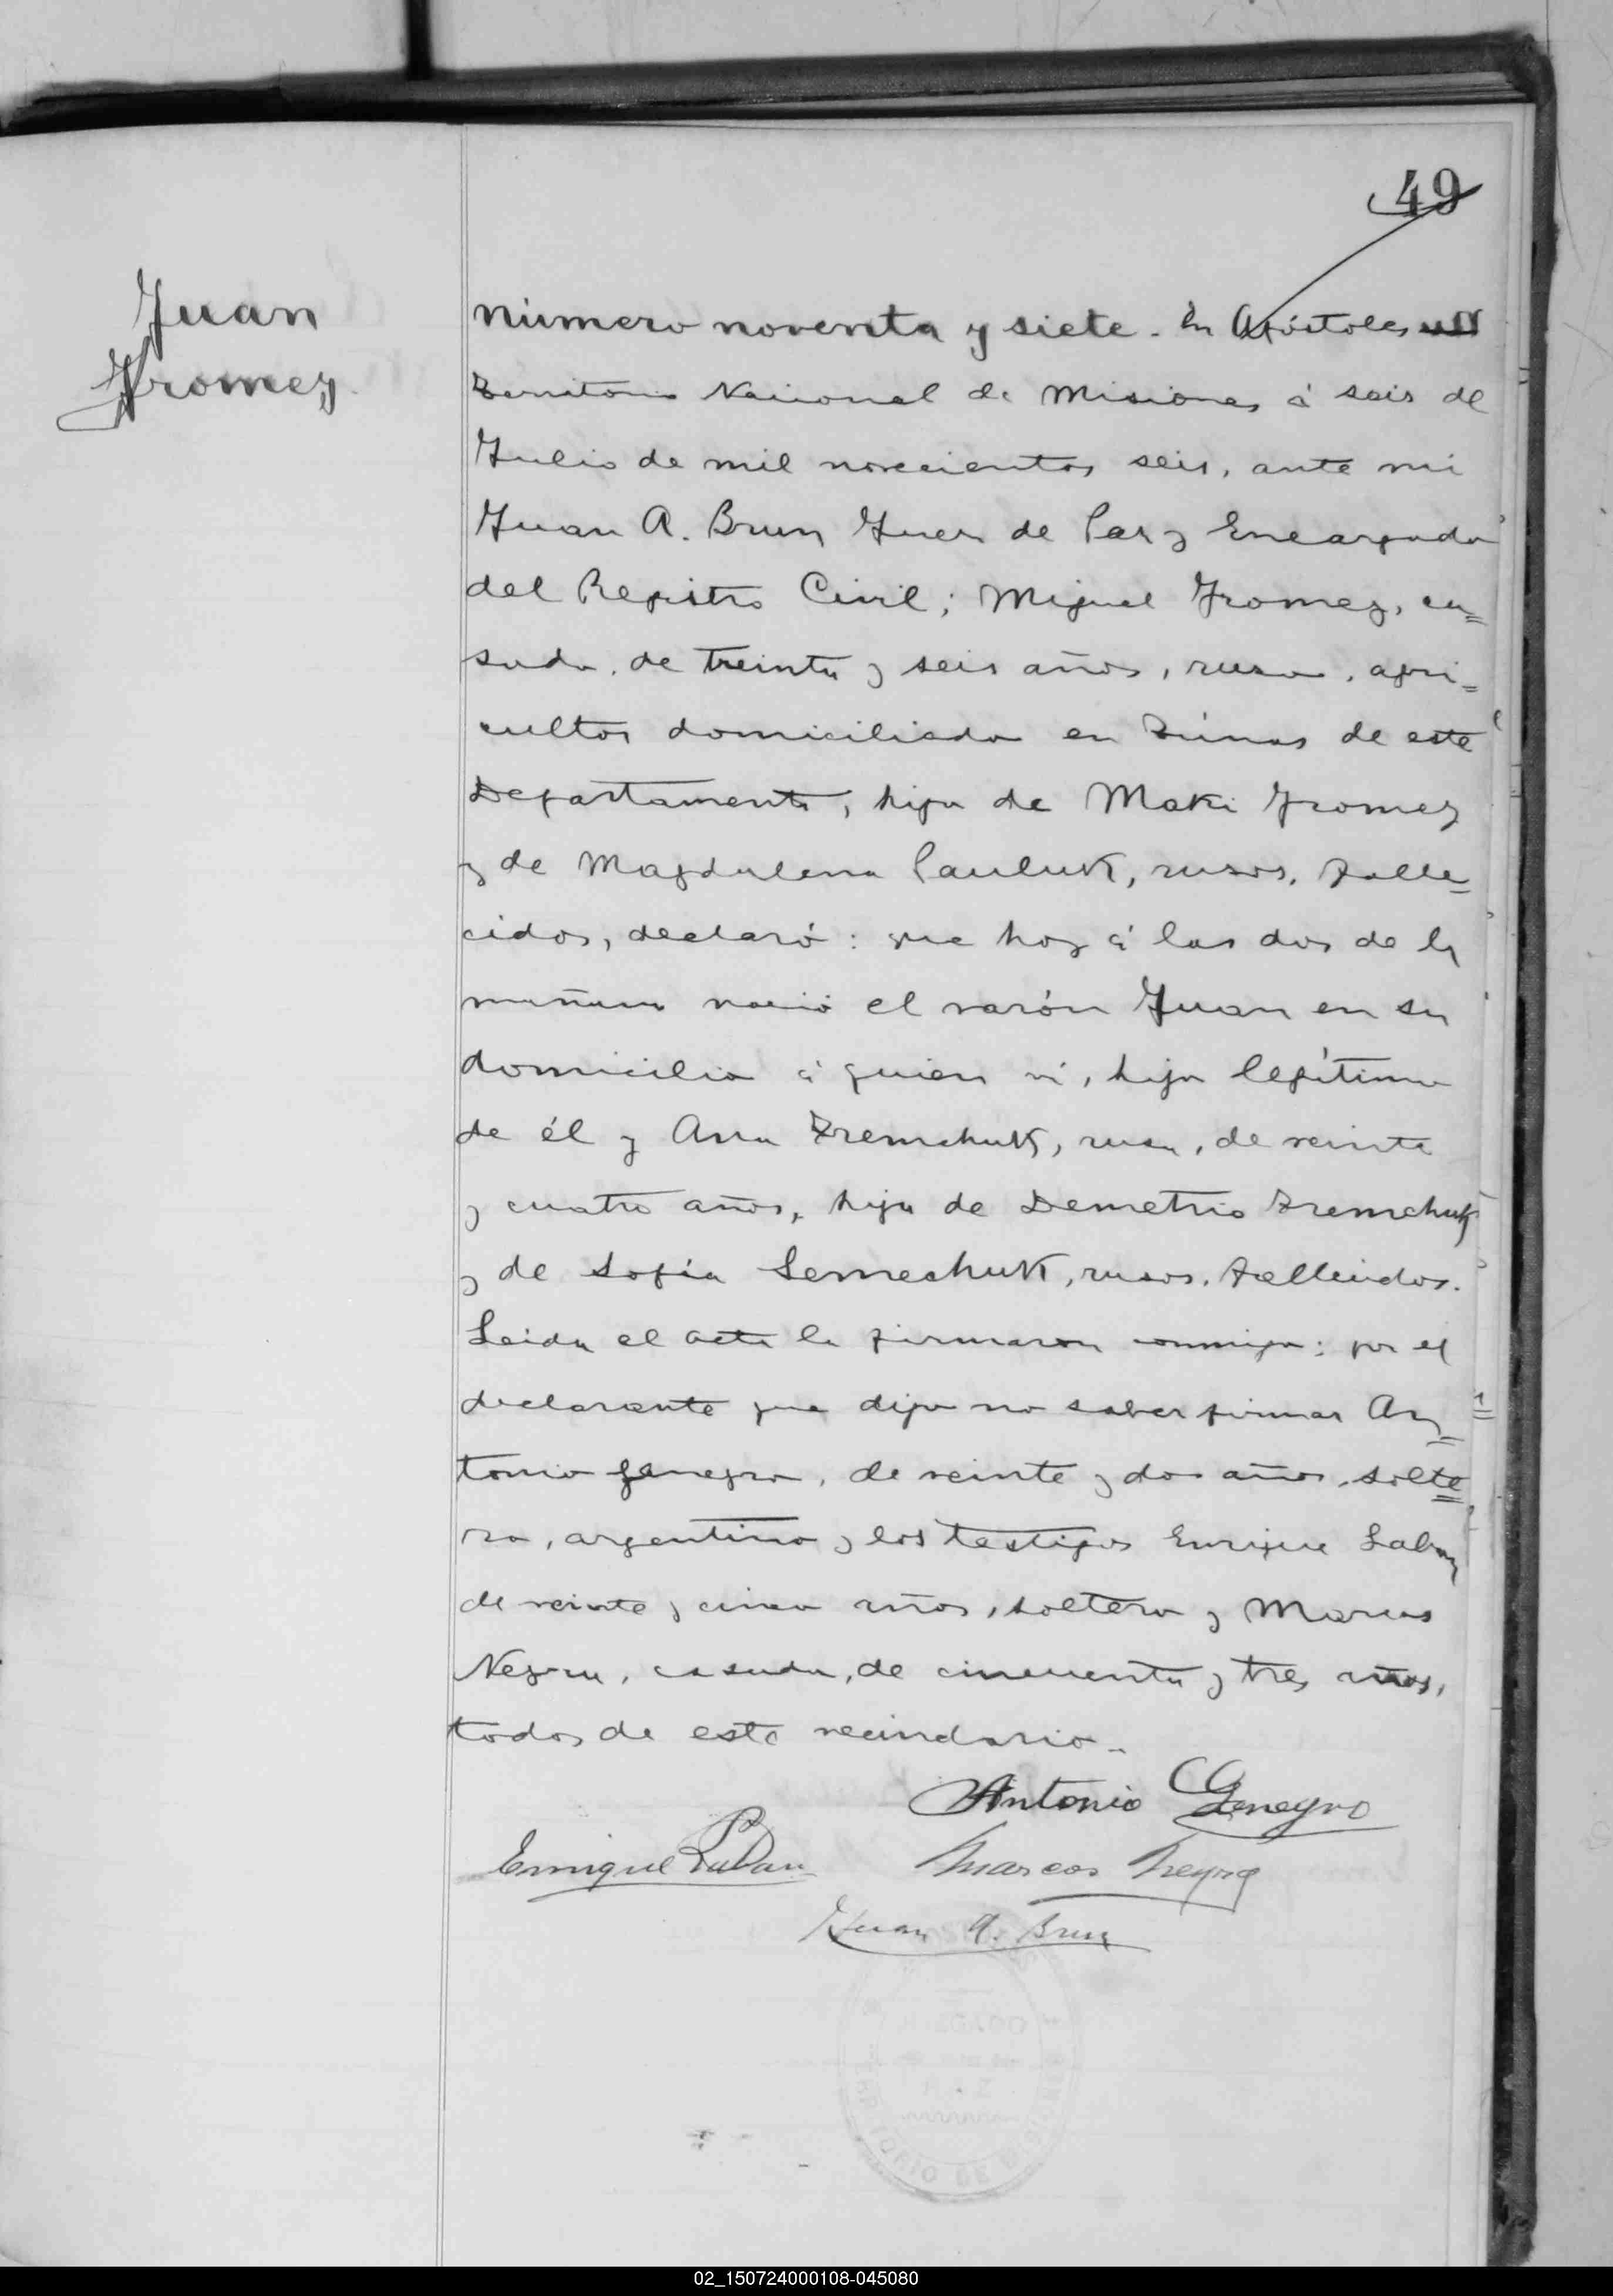 49
Juan
Hromez
Número noventa y siete. En Apóstoles
Territorio Nacional de Misiones á seis de
Julio de mil novecientos seis, ante mi
Juan A. Brun Juez de Paz y Encargado
del Registro Civil; Miguel Hromez, ca=
sado, de treinta y seis años, ruso, agri=
cultor domiciliado en Túnas de este
Departamento, hijo de Maki Hromez
y de Magdalena Pauluk, rusos, falle=
cidos, declaró: que hoy á las dos de la
mañana nació el varón Juan en su
domicilio á quien ví, hijo legítimo
de él y Ana Tremchuk, rusa, de veinte
y cuatro años, hija de Demetrio Tremchuk
y de Sofía Semechuk, rusos, fallecidos.
Leida el acta la firmaron conmigo: por el
declarante que dijo no saber firmar An=
tonio Genegro, de veinte y dos años, solte=
ro, argentino y los testigos Enrique
de veinte y cinco años, soltero y Marcos
Neyra, casado, de cincuenta y tres años,
todos de este vecindario.
Antonio Genegro
Enrique Marcos Neyra
Juan A. Brun
02_150724000108-045080